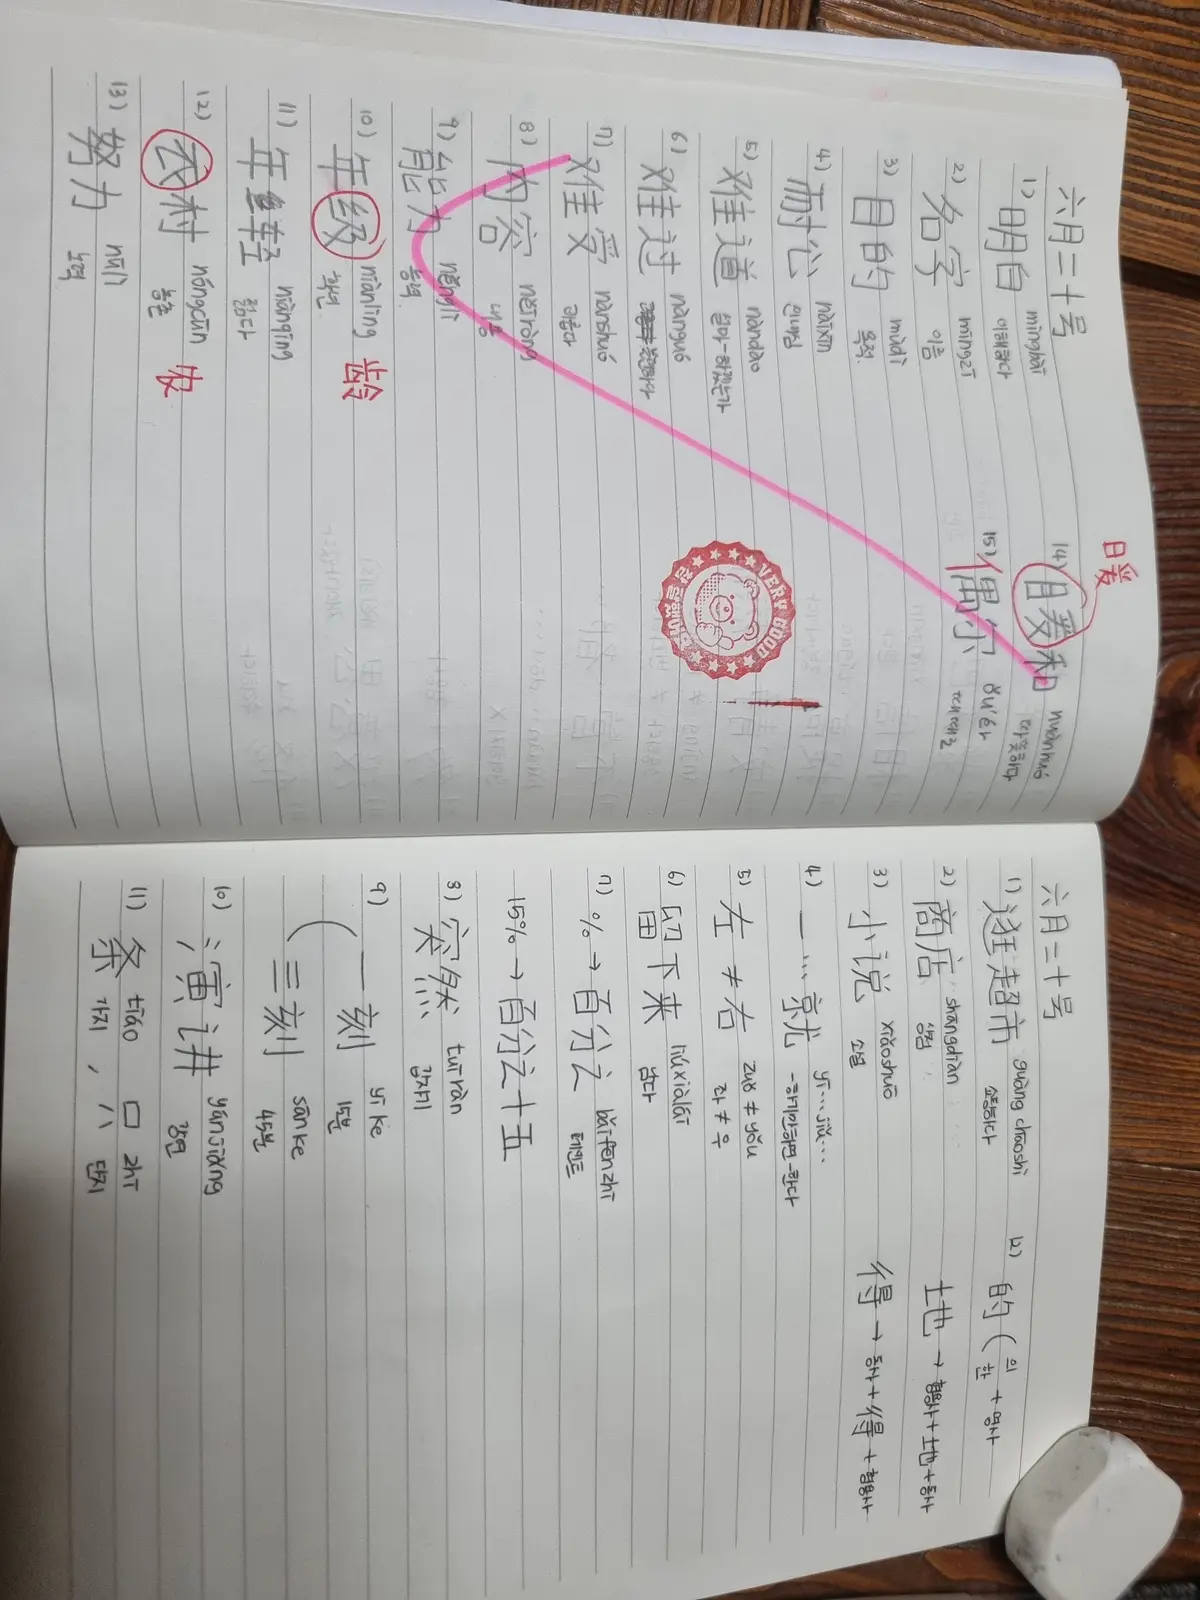 六月二十号
1) 明白 míngbái
이해하다
2) 名字 míngzì
이름
3) 目的 mùdì
목적
4) 耐心 nàixīn
인내심
5) 难道 nándào
설마~하겠는가
6) 难过 nánguò
7) 难受 nánshòu
괴롭다
8) 内容 nèiróng
내용
9) 能力 nénglì
능력
10) 年级 niánlíng 龄
학년
11) 年轻 niánqīng
젊다
12) 农村 nóngcūn 农
농촌
13) 努力 nǔlì
노력
暖
14) 暖和 nuǎnhuó
따뜻하다
15) 偶尔 ǒu'ěr
때때로
VERY GOOD
참 잘했어요
六月二十号
1) 逛超市 guàng chāoshì
쇼핑하다
2) 商店 shāngdiàn
상점
3) 小说 xiǎoshuō
소설
4) 一…就 yī…jiù…
~하기만하면 ~한다
5) 左 ≠ 右 zuǒ ≠ yòu
좌 ≠ 우
6) 留下来 liúxiàlái
남다
7) % → 百分之 bǎifēnzhī
퍼센트
15% → 百分之十五
8) 突然 tūrán
갑자기
9) 一刻 yī kè
15분
三刻 sān kè
45분
10) 演讲 yǎnjiǎng
강연
11) 条 tiáo 只 zhī
가지, 단지
12) 的 ( 의 한 + 명사
地 → 형용사 + 地 + 동사
得 → 동사 + 得 + 형용사